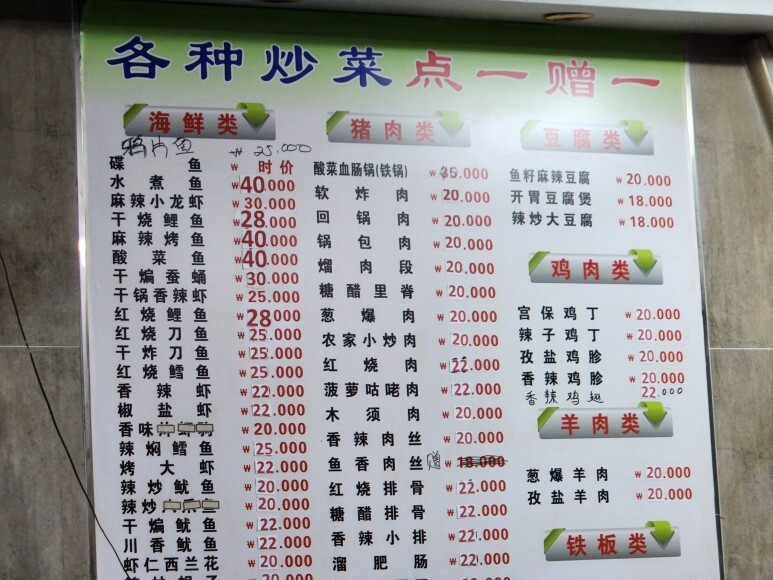 各种炒菜点一赠一
海鲜类
鸦片鱼 ₩ 25.000
碟鱼 ₩ 时价
水煮鱼 ₩40.000
麻辣小龙虾 ₩30.000
干烧鲤鱼 ₩28.000
麻辣烤鱼 ₩40.000
酸菜鱼 ₩40.000
干煸蚕蛹 ₩30.000
干锅香辣虾 ₩25.000
红烧鲤鱼 ₩28000
红烧刀鱼 ₩25.000
干炸刀鱼 ₩25.000
红烧鳕鱼 ₩25.000
香辣虾 ₩22.000
椒盐虾 ₩22.000
香味 ₩20.000
辣焖鳕鱼 ₩25.000
烤大虾 ₩22.000
辣炒鱿鱼 ₩20.000
辣炒 ₩20.000
干煸鱿鱼 ₩22.000
川香鱿鱼 ₩22.000
虾仁西兰花 ₩20.000
猪肉类
酸菜血肠锅(铁锅) ₩35.000
软炸肉 ₩20.000
回锅肉 ₩20.000
锅包肉 ₩20.000
熘肉段 ₩20.000
糖醋里脊 ₩20.000
葱爆肉 ₩20.000
农家小炒肉 ₩20.000
红烧肉 ₩22.000
菠萝咕咾肉 ₩22.000
木须肉 ₩20.000
香辣肉丝 ₩20.000
鱼香肉丝 赠 ₩18.000
红烧排骨 ₩22.000
糖醋排骨 ₩22.000
香辣小排 ₩22.000
溜肥肠 ₩22.000
豆腐类
鱼籽麻辣豆腐 ₩20.000
开胃豆腐煲 ₩18.000
辣炒大豆腐 ₩18.000
鸡肉类
宫保鸡丁 ₩20.000
辣子鸡丁 ₩20.000
孜盐鸡胗 ₩20.000
香辣鸡胗 ₩20.000
香辣鸡翅 22.000
羊肉类
葱爆羊肉 ₩20.000
孜盐羊肉 ₩20.000
铁板类